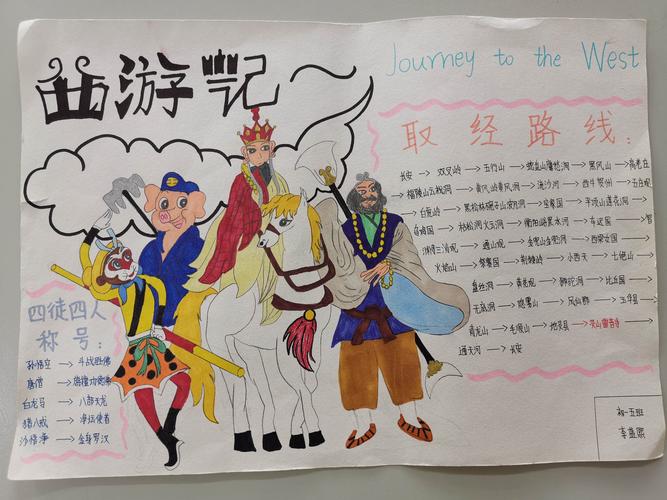 西游记
Journey to the West
取经路线：
长安→双叉岭→五行山→蛇盘山鹰愁涧→黑风山→高老庄
→福陵山云栈洞→黄风岭黄风洞→流沙河→西牛贺州→五庄观
→白虎岭→黑松林碗子山波月洞→宝象国→平顶山莲花洞→
乌鸡国→枯松涧火云洞→衡阳峪黑水河→车迟国→
→通天河→金兜山金兜洞→西梁女国→
火焰山→祭赛国→荆棘岭→小西天→七绝山→
盘丝洞→黄花观→狮驼洞→比丘国→
无底洞→隐雾山→凤仙郡→玉华县→
青龙山→毛颖山→地灵县→灵山雷音寺→
通天河→长安
四徒四人
称号：
孙悟空→斗战胜佛
唐僧→旃檀功德佛
白龙马→八部天龙
猪八戒→净坛使者
沙悟净→金身罗汉
初一五班